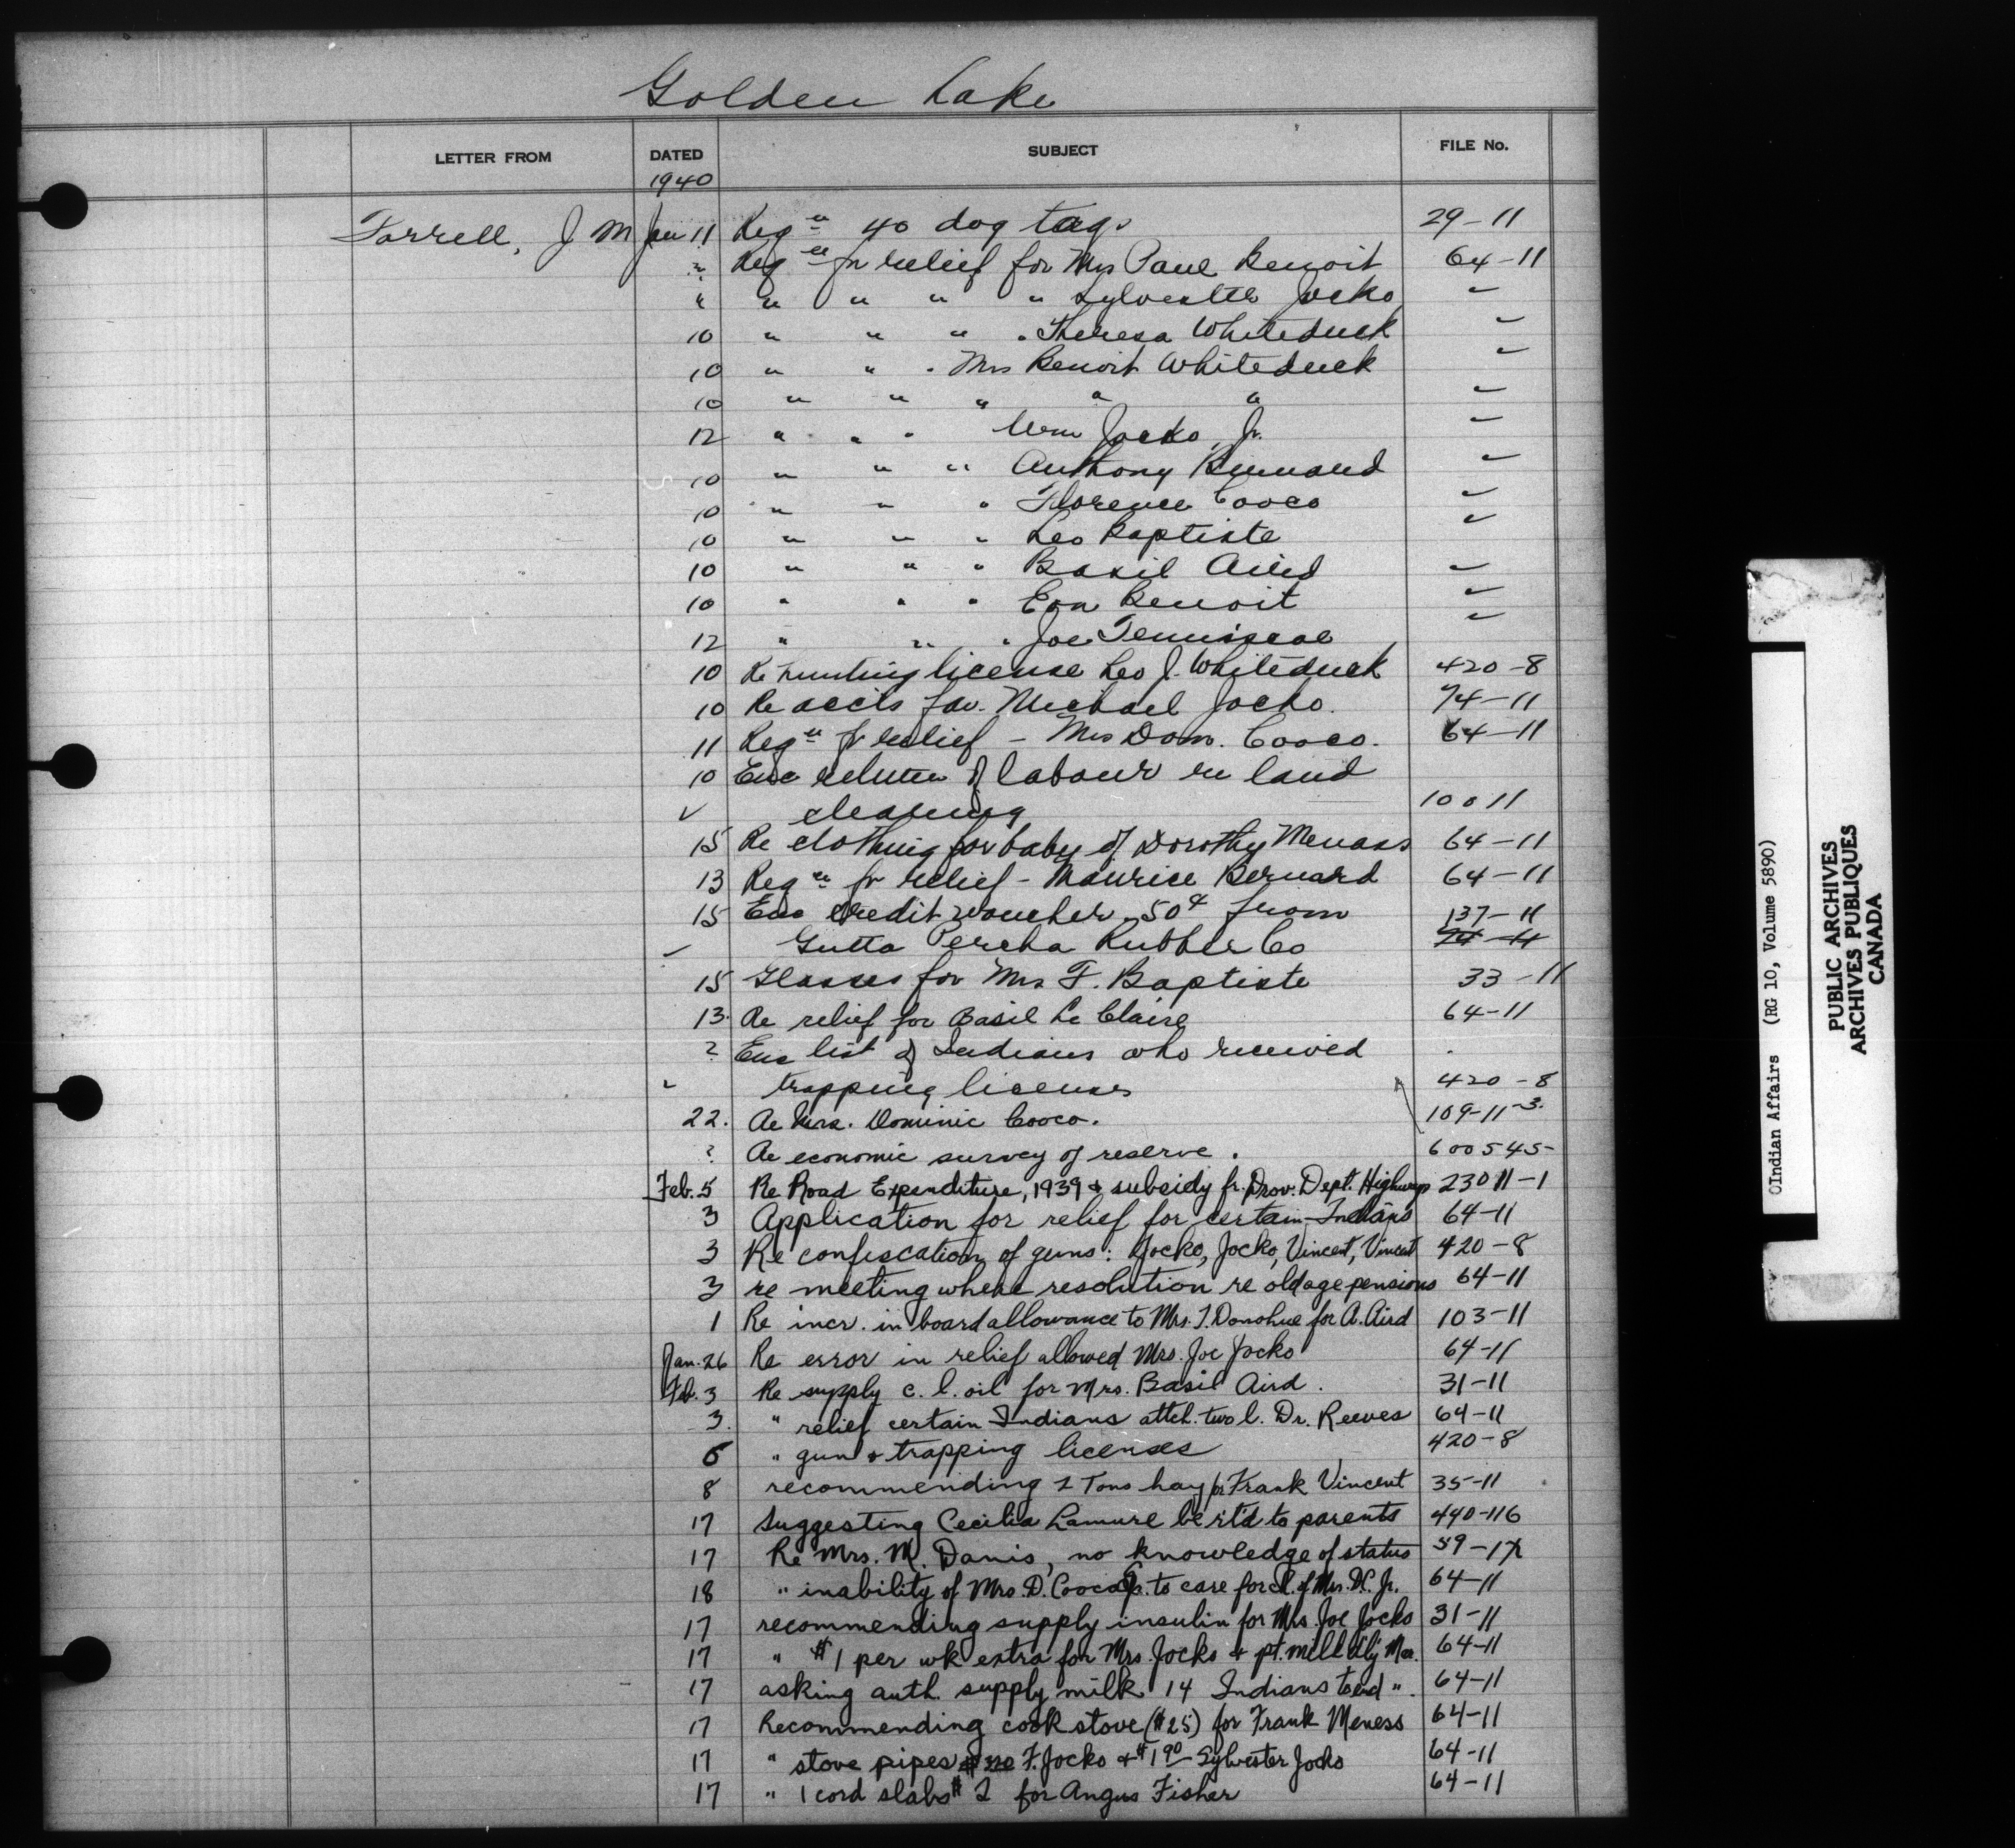 Golden Lake
LETTER FROM DATED SUBJECT FILE No.
1940
Farrell, J M Jan 11 Reqn 40 dog tags 29-11
? Reqn fr relief for Mrs Paul Benoit 64-11
" " " " " Sylvester Jocko "
10 " " " " Theresa Whiteduck "
10 " " " Mrs Benoit Whiteduck "
10 " " " " " "
12 " " " Wm Jocko, Jr. "
10 " " " Anthony Bernard "
10 " " " Florence Cooco "
10 " " " Leo Baptiste "
10 " " " Basil Aird "
10 " " " Eva Benoit "
12 " " " Joe Tennisco "
10 Re hunting license Leo J. Whiteduck 420-8
10 Re accts fav. Michael Jocko. 74-11
11 Reqn fr relief - Mrs Dom. Cooco. 64-11
10 Enc return of labour re land
✓ clearing 10011
15 Re clothing for baby of Dorothy Menass 64-11
13 Reqn fr relief - Maurice Bernard 64-11
15 Enc credit voucher 50¢ from 137-11
Gutta Percha Rubber Co 74-11
15 Glasses for Mrs F. Baptiste 33-11
13. Re relief for Basil Le Claire 64-11
? Enc list of Indians who received
trapping licenses 420-8
22. Re Mrs. Dominic Cooco. 109-11-3.
? Re economic survey of reserve. 600545-
Feb. 5 Re Road Expenditure, 1939 & subsidy fr. Prov. Dept. Highways 23011-1
3 Application for relief for certain Indians 64-11
3 Re confiscation of guns: Jocko, Jocko, Vincent, Vincent 420-8
3 re meeting where resolution re old age pensions 64-11
1 Re incr. in board allowance to Mrs. T. Donohue for A. Aird 103-11
Jan. 26 Re error in relief allowed Mrs. Joe Jocko 64-11
Feb. 3 Re supply c. l. oil for Mrs. Basil Aird. 31-11
3. " relief certain Indians attch. two l. Dr. Reeves 64-11
5 " gun & trapping licenses 420-8
8 recommending 2 Tons hay for Frank Vincent 35-11
17 Suggesting Cecilia Lamure be rt'd to parents 490-116
17 Re Mrs. M. Danis, no knowledge of status 59-17
18 " inability of Mrs. D. Cooco Sr. to care for cl. of Mrs. D.C. Jr. 64-11
17 recommending supply insulin for Mrs. Joe Jocko 31-11
17 " $1 per wk extra for Mrs. Jocko & pt. milk d'ly Mar. 64-11
17 asking auth. supply milk 14 Indians to end ". 64-11
17 Recommending cook stove ($25) for Frank Meness 64-11
17 " stove pipes F. Jocko & $1.90 Sylvester Jocko 64-11
17 " 1 cord slabs $2 for Angus Fisher 64-11
©Indian Affairs (RG 10, Volume 5890)
PUBLIC ARCHIVES
ARCHIVES PUBLIQUES
CANADA